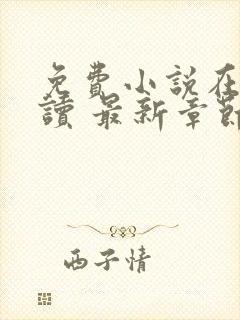 免費小說在
讀 最新章節
西子情